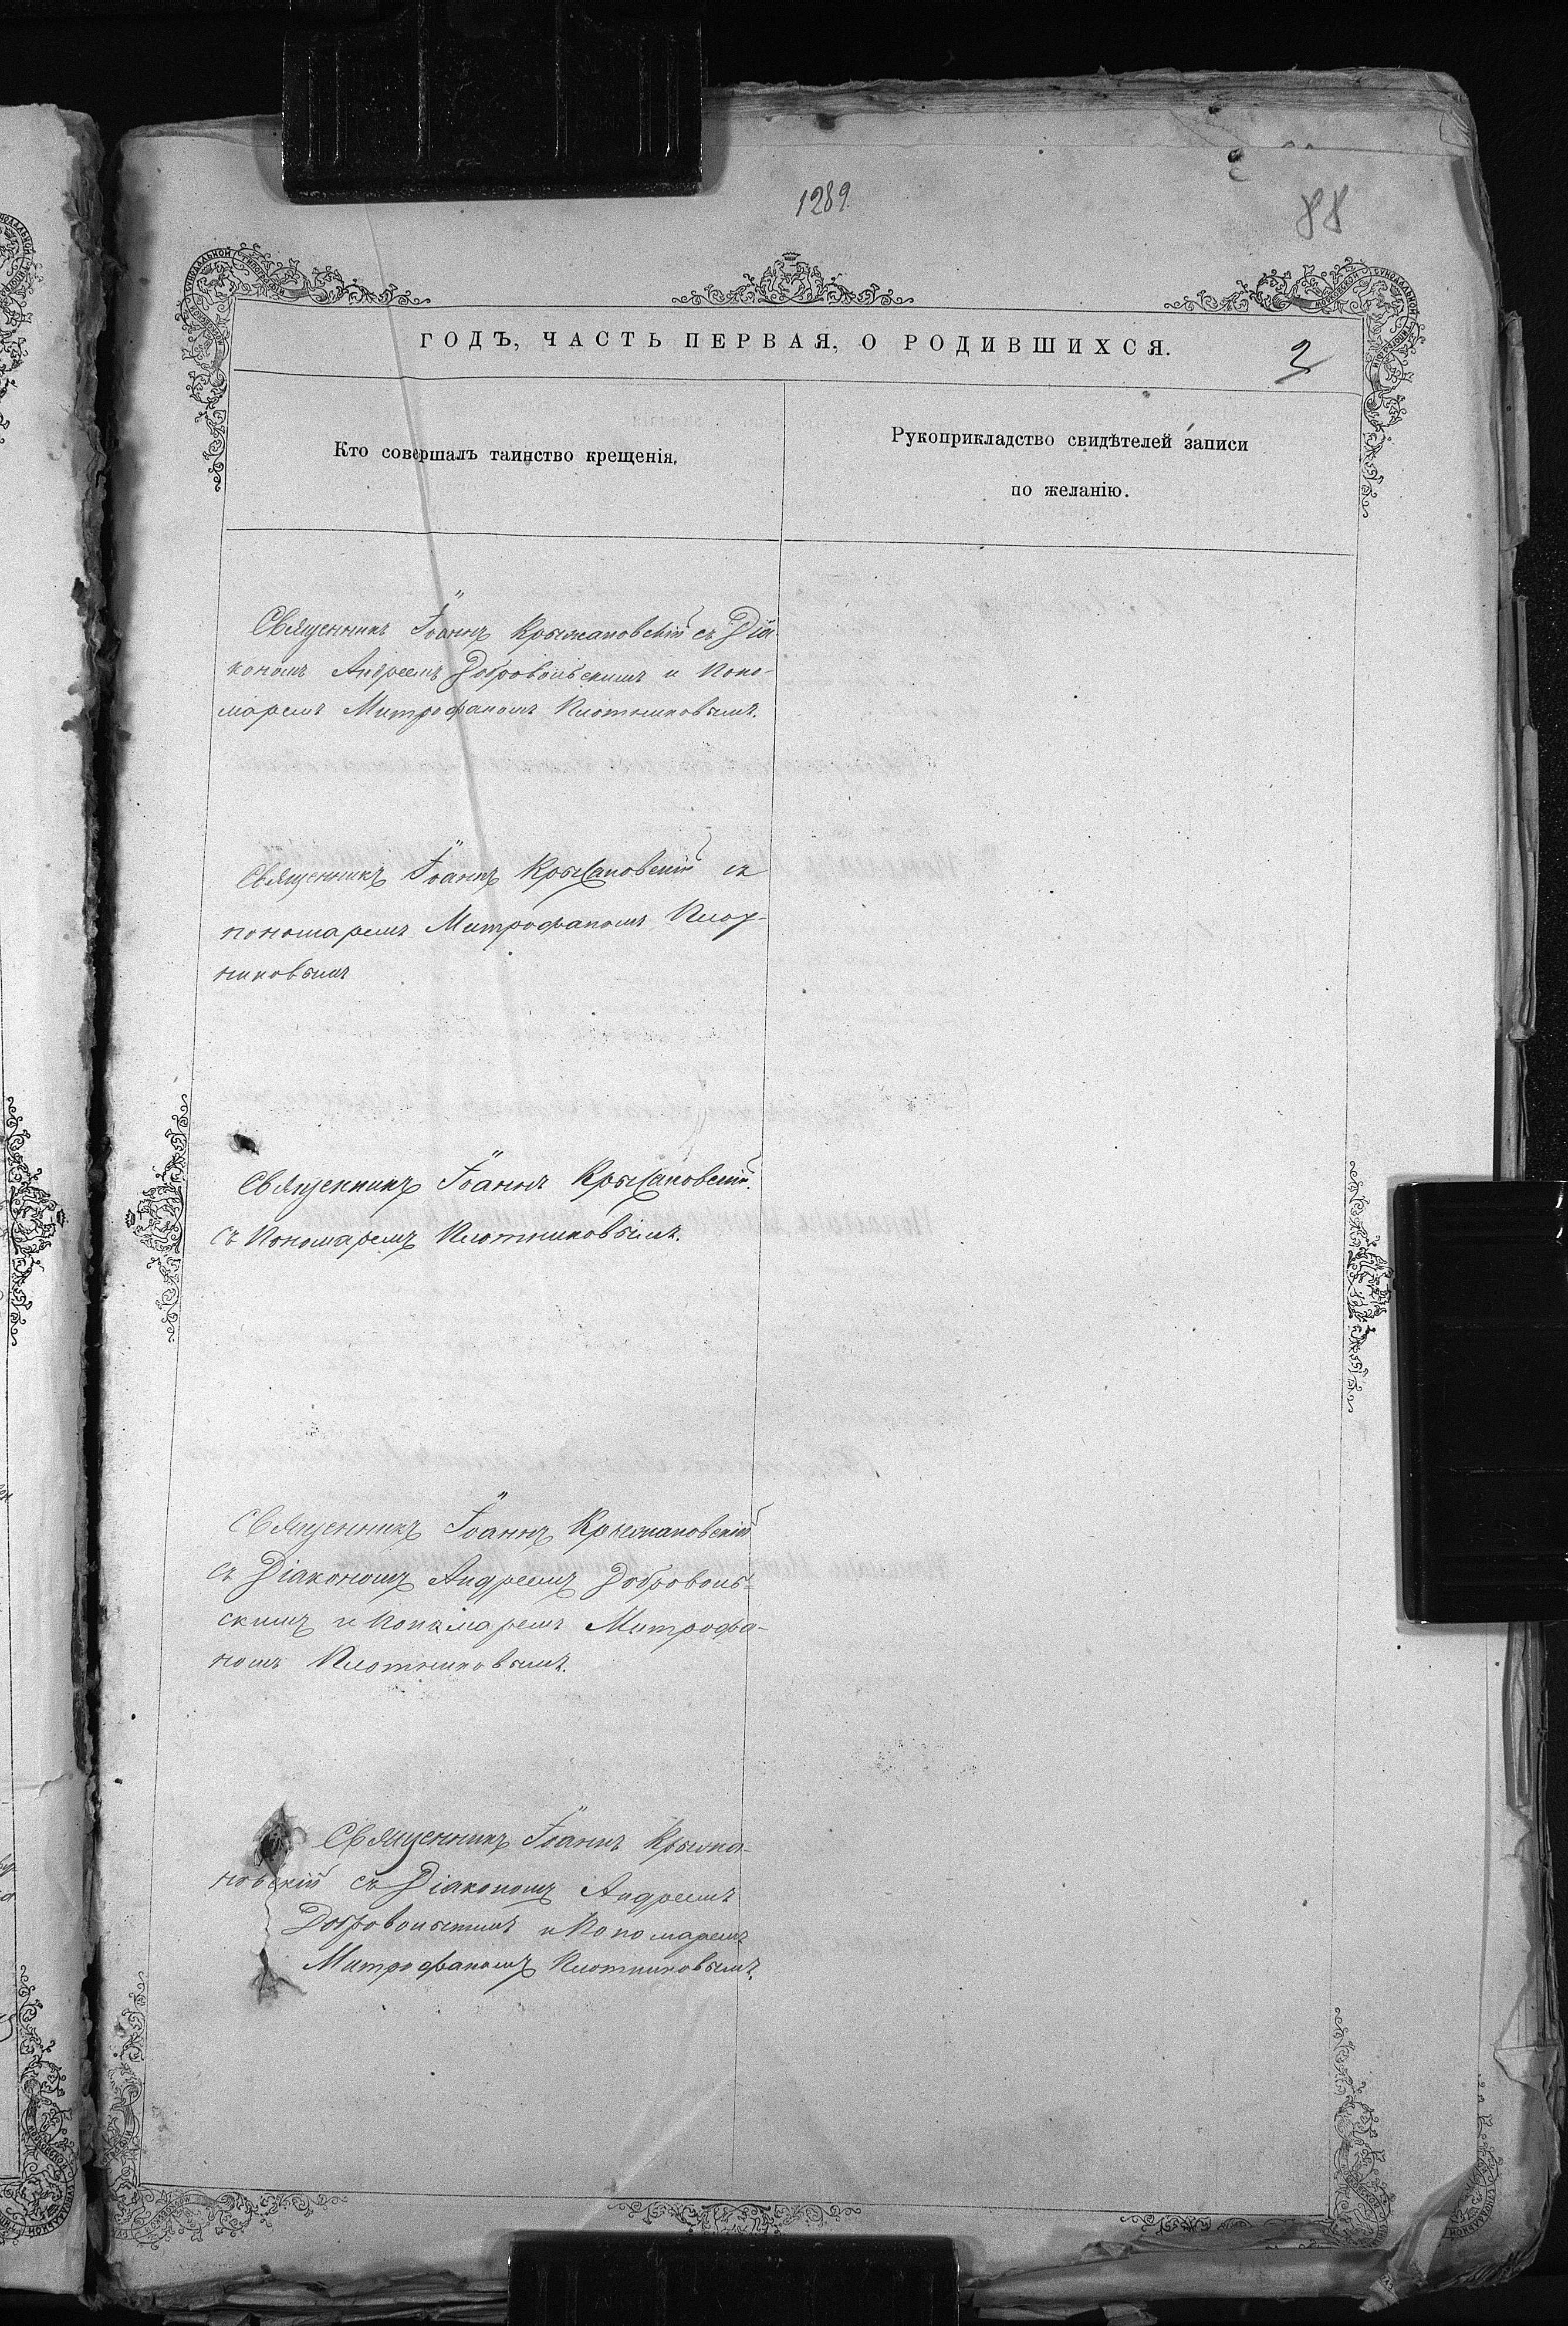 1289
88
ГОДЪ, ЧАСТЬ ПЕРВАЯ, О РОДИВШИХСЯ.
2
Кто совершалъ таинство крещенія.
Рукоприкладство свидѣтелей записи
по желанію.
Священникъ Іоаннъ Крыжановскій съ Діа
кономъ Андреемъ Добровольскимъ и Поно-
маремъ Митрофаномъ Плотниковымъ.
Священникъ Іоаннъ Крыжановскій съ
пономаремъ Митрофаномъ Плот-
никовымъ
Священникъ Іоаннъ Крыжановскій
съ Пономаремъ Плотниковымъ.
Священникъ Іоаннъ Крыжановскій
съ Діакономъ Андреемъ Доброволь-
скимъ и Пономаремъ Митрофа-
номъ Плотниковымъ.
Священникъ Іоаннъ Крыжа-
новскій съ Діакономъ Андреемъ
Добровольскимъ и Пономаремъ
Митрофаномъ Плотниковымъ.